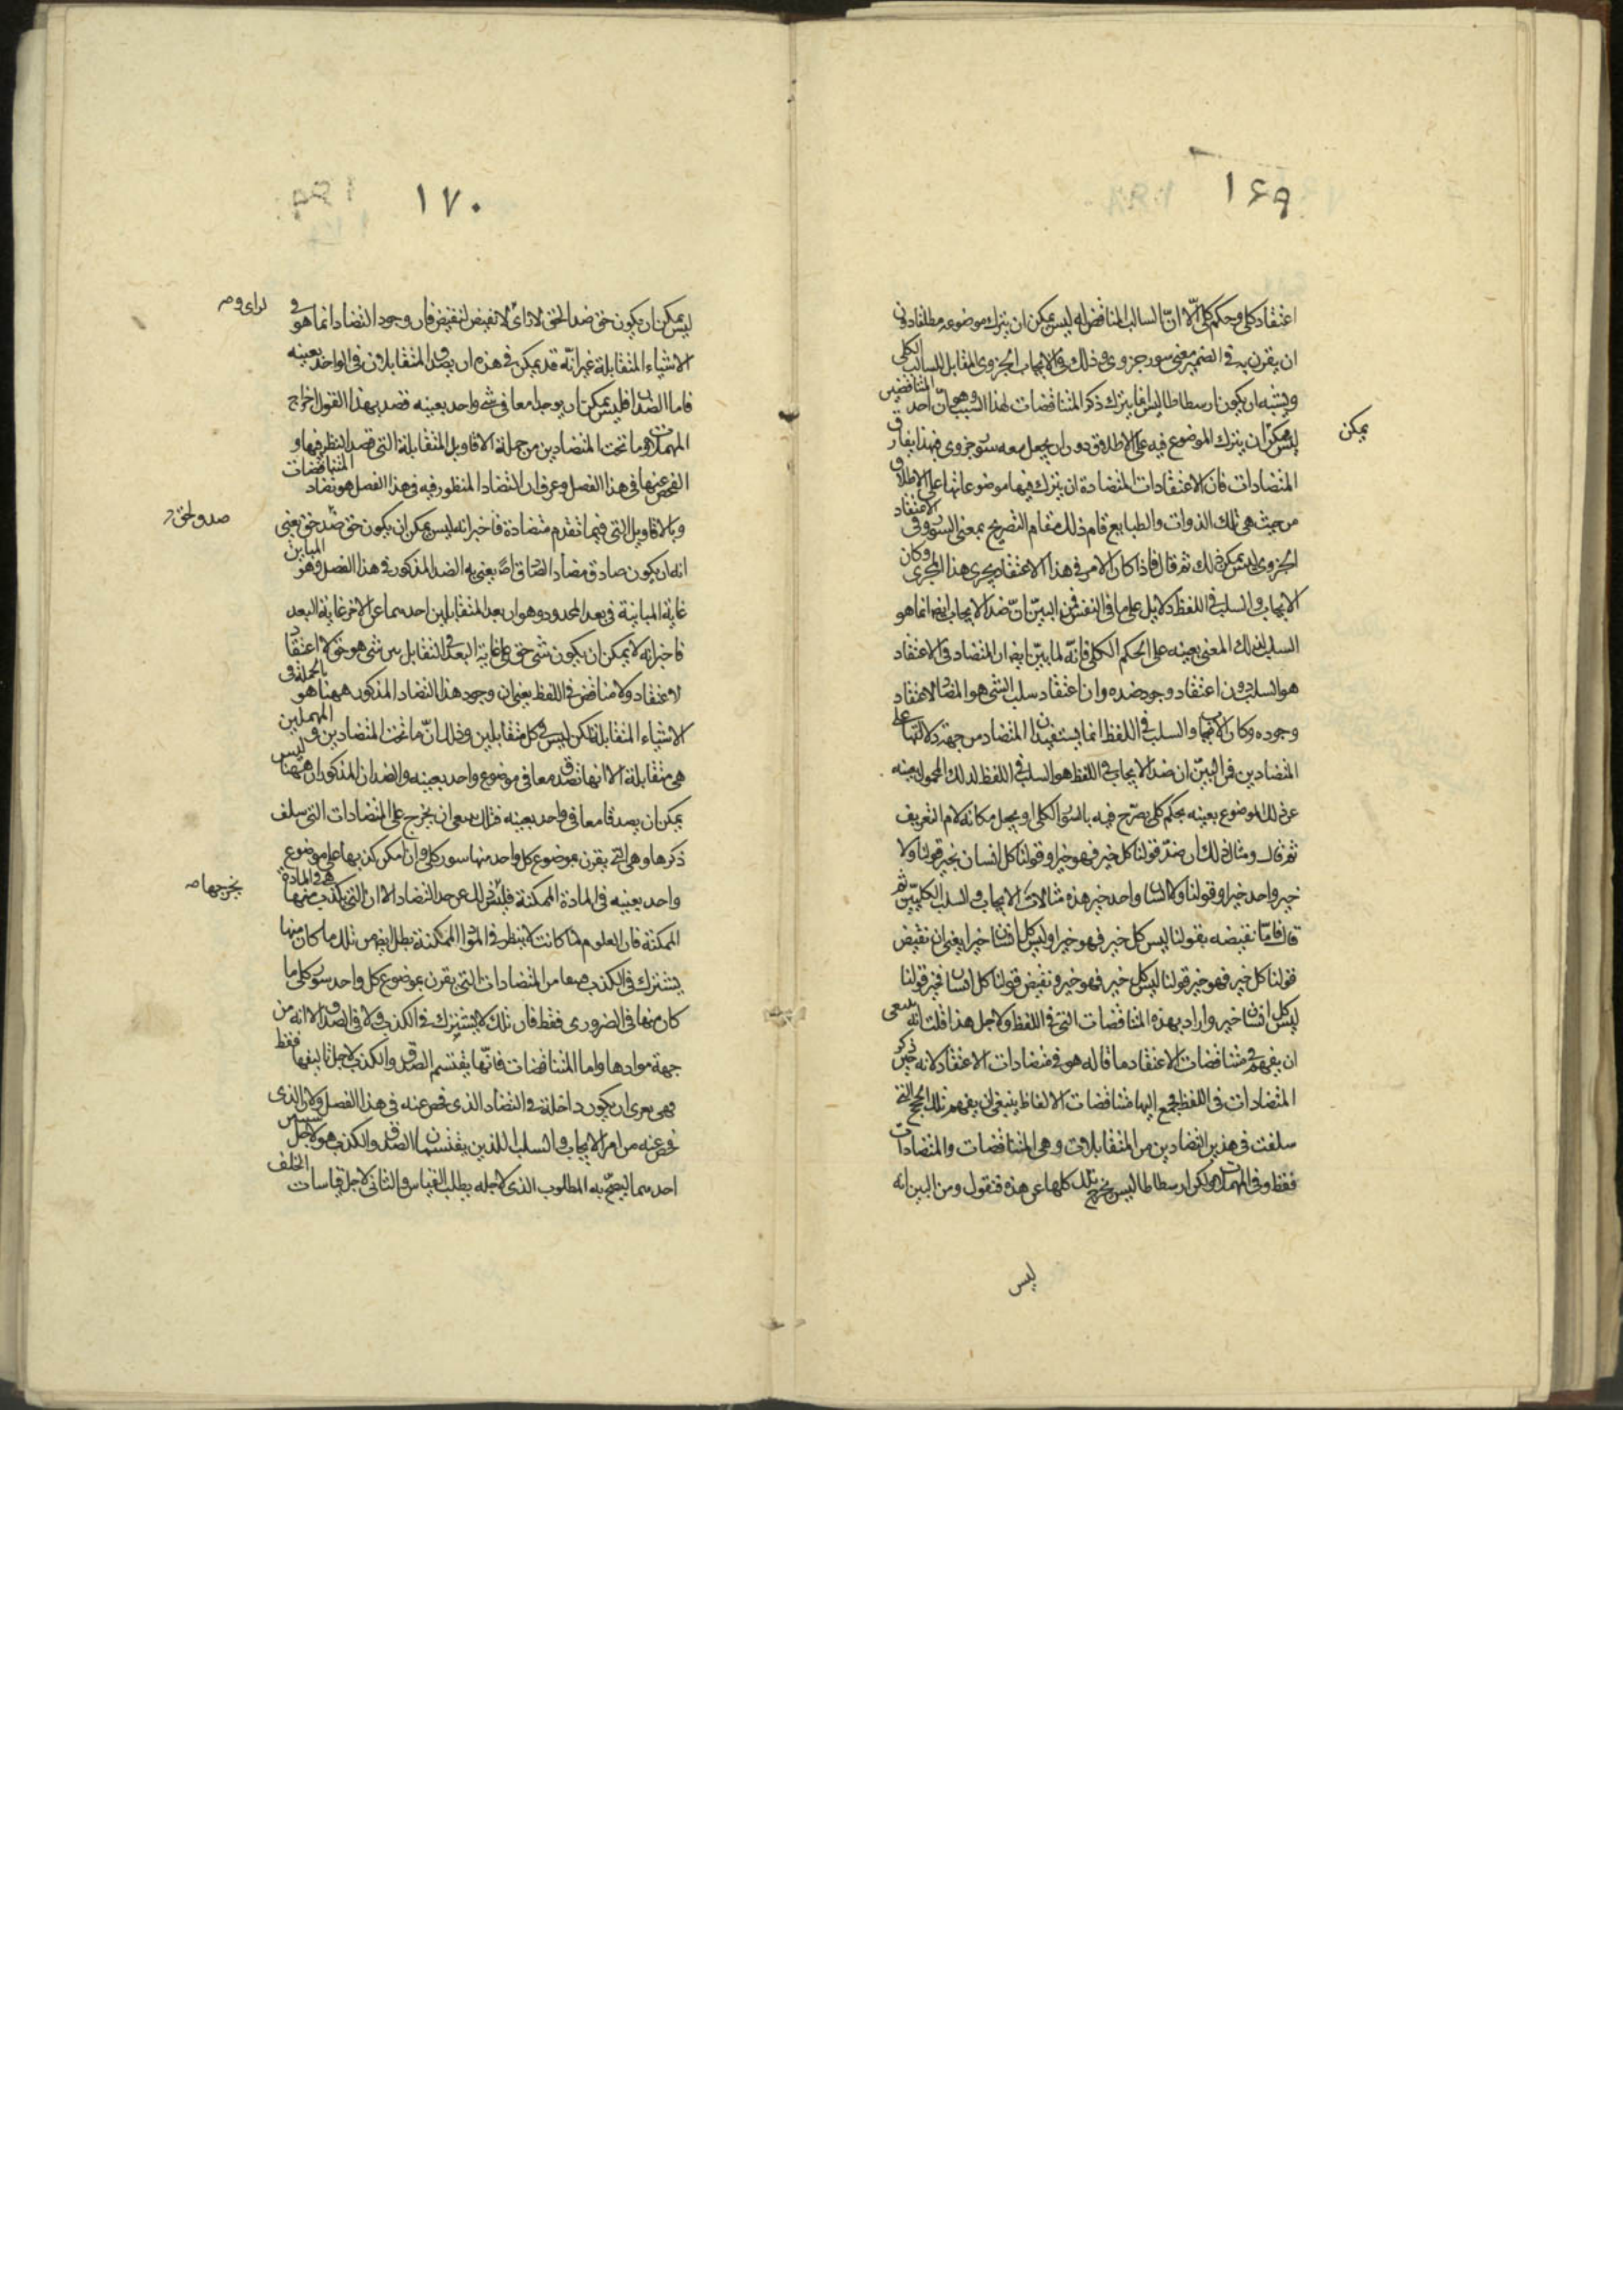 ١٦٩
اعتقاد كلى وحكم كلى الّا انّ السالب المناقض له ليس يمكن ان يترك موضوعه مطلقا دون
ان يقرن به فى الضمير معنى سور جزوى وذلك فى الايجاب الجزوى المقابل للسالب الكلى
ويشبه ان يكون ارسطاطاليس انما يترك ذكر المتناقضات لهذا السبب وهو انّ احد المتناقضين
ليس يمكن ان يترك الموضوع فيه على الاطلاق دون ان يجعل معه سور جزوى فهذا يفارق
يمكن
المتضادات فان الاعتقادات المتضادة ان يترك فيها موضوعاتها على الاطلاق
من حيث هى تلك الذوات والطبايع قام ذلك مقام التصريح بمعنى السور وفى الاعتقاد
الجزوى ليس يمكن ذلك ثم قال فاذا كان الامر فى هذا الاعتقاد يجرى هذا المجرى وكان
الايجاب والسلب فى اللفظ دلايل على ما فى النفس فمن البيّن انّ ضد الايجاب ايضا انما هو
السلب لذلك المعنى بعينه على الحكم الكلى فانّه لما بيّن ايضا ان المتضاد فى الاعتقاد
هو السلب دون اعتقاد وجود ضده وان اعتقاد سلب الشى هو المضاد لاعتقاد
وجوده وكان الايجاب والسلب فى اللفظ انما يستفيدان المتضاد من جهة دلالتهما على
المتضادين فمن البيّن ان ضد الايجاب فى اللفظ هو السلب فى اللفظ لذلك المحمول بعينه
عن ذلك الموضوع بعينه بحكم كلى يصرّح فيه بالسور الكلى او يجعل مكانه لام التعريف
ثم قال ومثال ذلك ان ضدّ قولنا كل خير فهو خير او قولنا كل انسان بخير قولنا ولا
خير واحد خير او قولنا ولا انسان واحد خير هذه مثالات الايجاب والسلب الكليّين ثم
قال فامّا نقيضه بقولنا ليس كل خير فهو خير او ليس كل انسان خيرا يعنى ان نقيض
قولنا كل خير فهو خير قولنا ليس كل خير فهو خير ونقيض قولنا كل انسان خير قولنا
ليس كل انسان خير واراد بهذه المتناقضات التى فى اللفظ ولاجل هذا قلت انه ينبغى
ان يفهم فى متناقضات الاعتقاد ما قاله هو فى متضادات الاعتقاد لانه حين ذكر
المتضادات فى اللفظ جمع اليها متناقضات الالفاظ ينبغى ان يفهم تلك الحجج التى
سلفت فى هذين المتضادين من المتقابلات وهى المتناقضات والمتضادات
فقط وفى المهملات ولكن ارسطاطاليس يخرج تلك كلها عن هذه فنقول ومن البين انه
ليس
١٧٠
ليس يمكن ان يكون حق ضد الحق لا راى لا نقيض لنقيض فان وجود التضاد انما هو فى
لراى و
الاشياء المتقابلة غير انّه قد يمكن فى هذه ان يصدق المتقابلان فى الواحد بعينه
فاما الضدان فليس يمكن ان يوجدا معا فى شى واحد بعينه قصد بهذا القول اخراج
المهملات وما تحت المتضادين من جملة الاقاويل المتقابلة التى قصد النظر فيها و
الفحص عنها فى هذا الفصل وعرف ان التضاد المنظور فيه فى هذا الفصل هو تضاد المتناقضات
وبالاقاويل التى فيما تقدم متضادة فاخبر انه ليس يمكن ان يكون حق ضد حق يعنى
انه ان يكون صادق مضاد الصادق اصلا يعنى به الضد المذكور فى هذا الفصل وهو المباين
غاية المباينة فى بعد المحدود وهو ان بعد المتقابلين احدهما عن الاخر غاية البعد
فاخبر انه لا يمكن ان يكون شى حق على غاية البعد فى التقابل من شى هو حق لا اعتقاد
لاعتقاد ولا مناقض فى اللفظ يعنى ان وجود هذا التضاد المذكور ههنا هو بالجملة فى
الاشياء المتقابلة لكن ليس فى كل متقابلين وذلك انّ ما تحت المتضادين والمهملين
هى متقابلة الا انها تصدق معا فى موضوع واحد بعينه والضدان المذكوران ههنا ليس
يمكن ان يصدقا معا فى واحد بعينه فذلك ينبغى ان يخرج على المتضادات التى سلف
ذكرها وهى التى يقرن بموضوع كل واحد منها سور كلى وان امكن كذبها على موضوع
واحد بعينه فى المادة الممكنة فليس ذلك عن حد التضاد الا ان التى يكذب منها هى فى المادة
يخرجها
الممكنة فان العلوم لما كانت لا ينظر فى المواد الممكنة بطل ايضا من تلك ما كان منها
يشترك فى الكذب معا من المتضادات التى يقرن بموضوع كل واحد سور كلى ما
كان منها فى الضرورى فقط فان تلك لا يشترك فى الكذب ولا فى الصدق الا انه من
جهة موادها واما المتناقضات فانّها يقتسم الصدق والكذب لاجل تاليفها فقط
فهى بعرى ان يكون داخلة فى التضاد الذى فحص عنه فى هذا الفصل ولان الذى
فحص عنه من امر الايجاب والسلب اللذين يقتسمان الصدق والكذب هو لاجل
احدهما ليصحّ به المطلوب الذى لاجله يطلب القياس والثانى لاجل قياسات الخلف